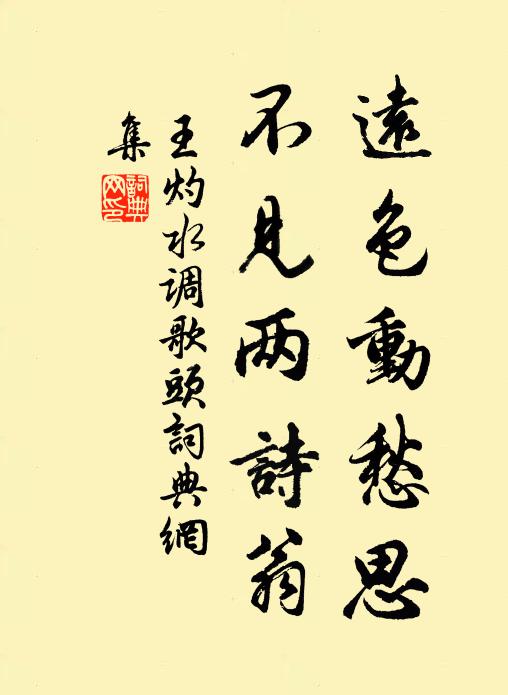 遠色動愁思
不見两詩翁
王灼水调歌頭詞典網
集
詞典
网印